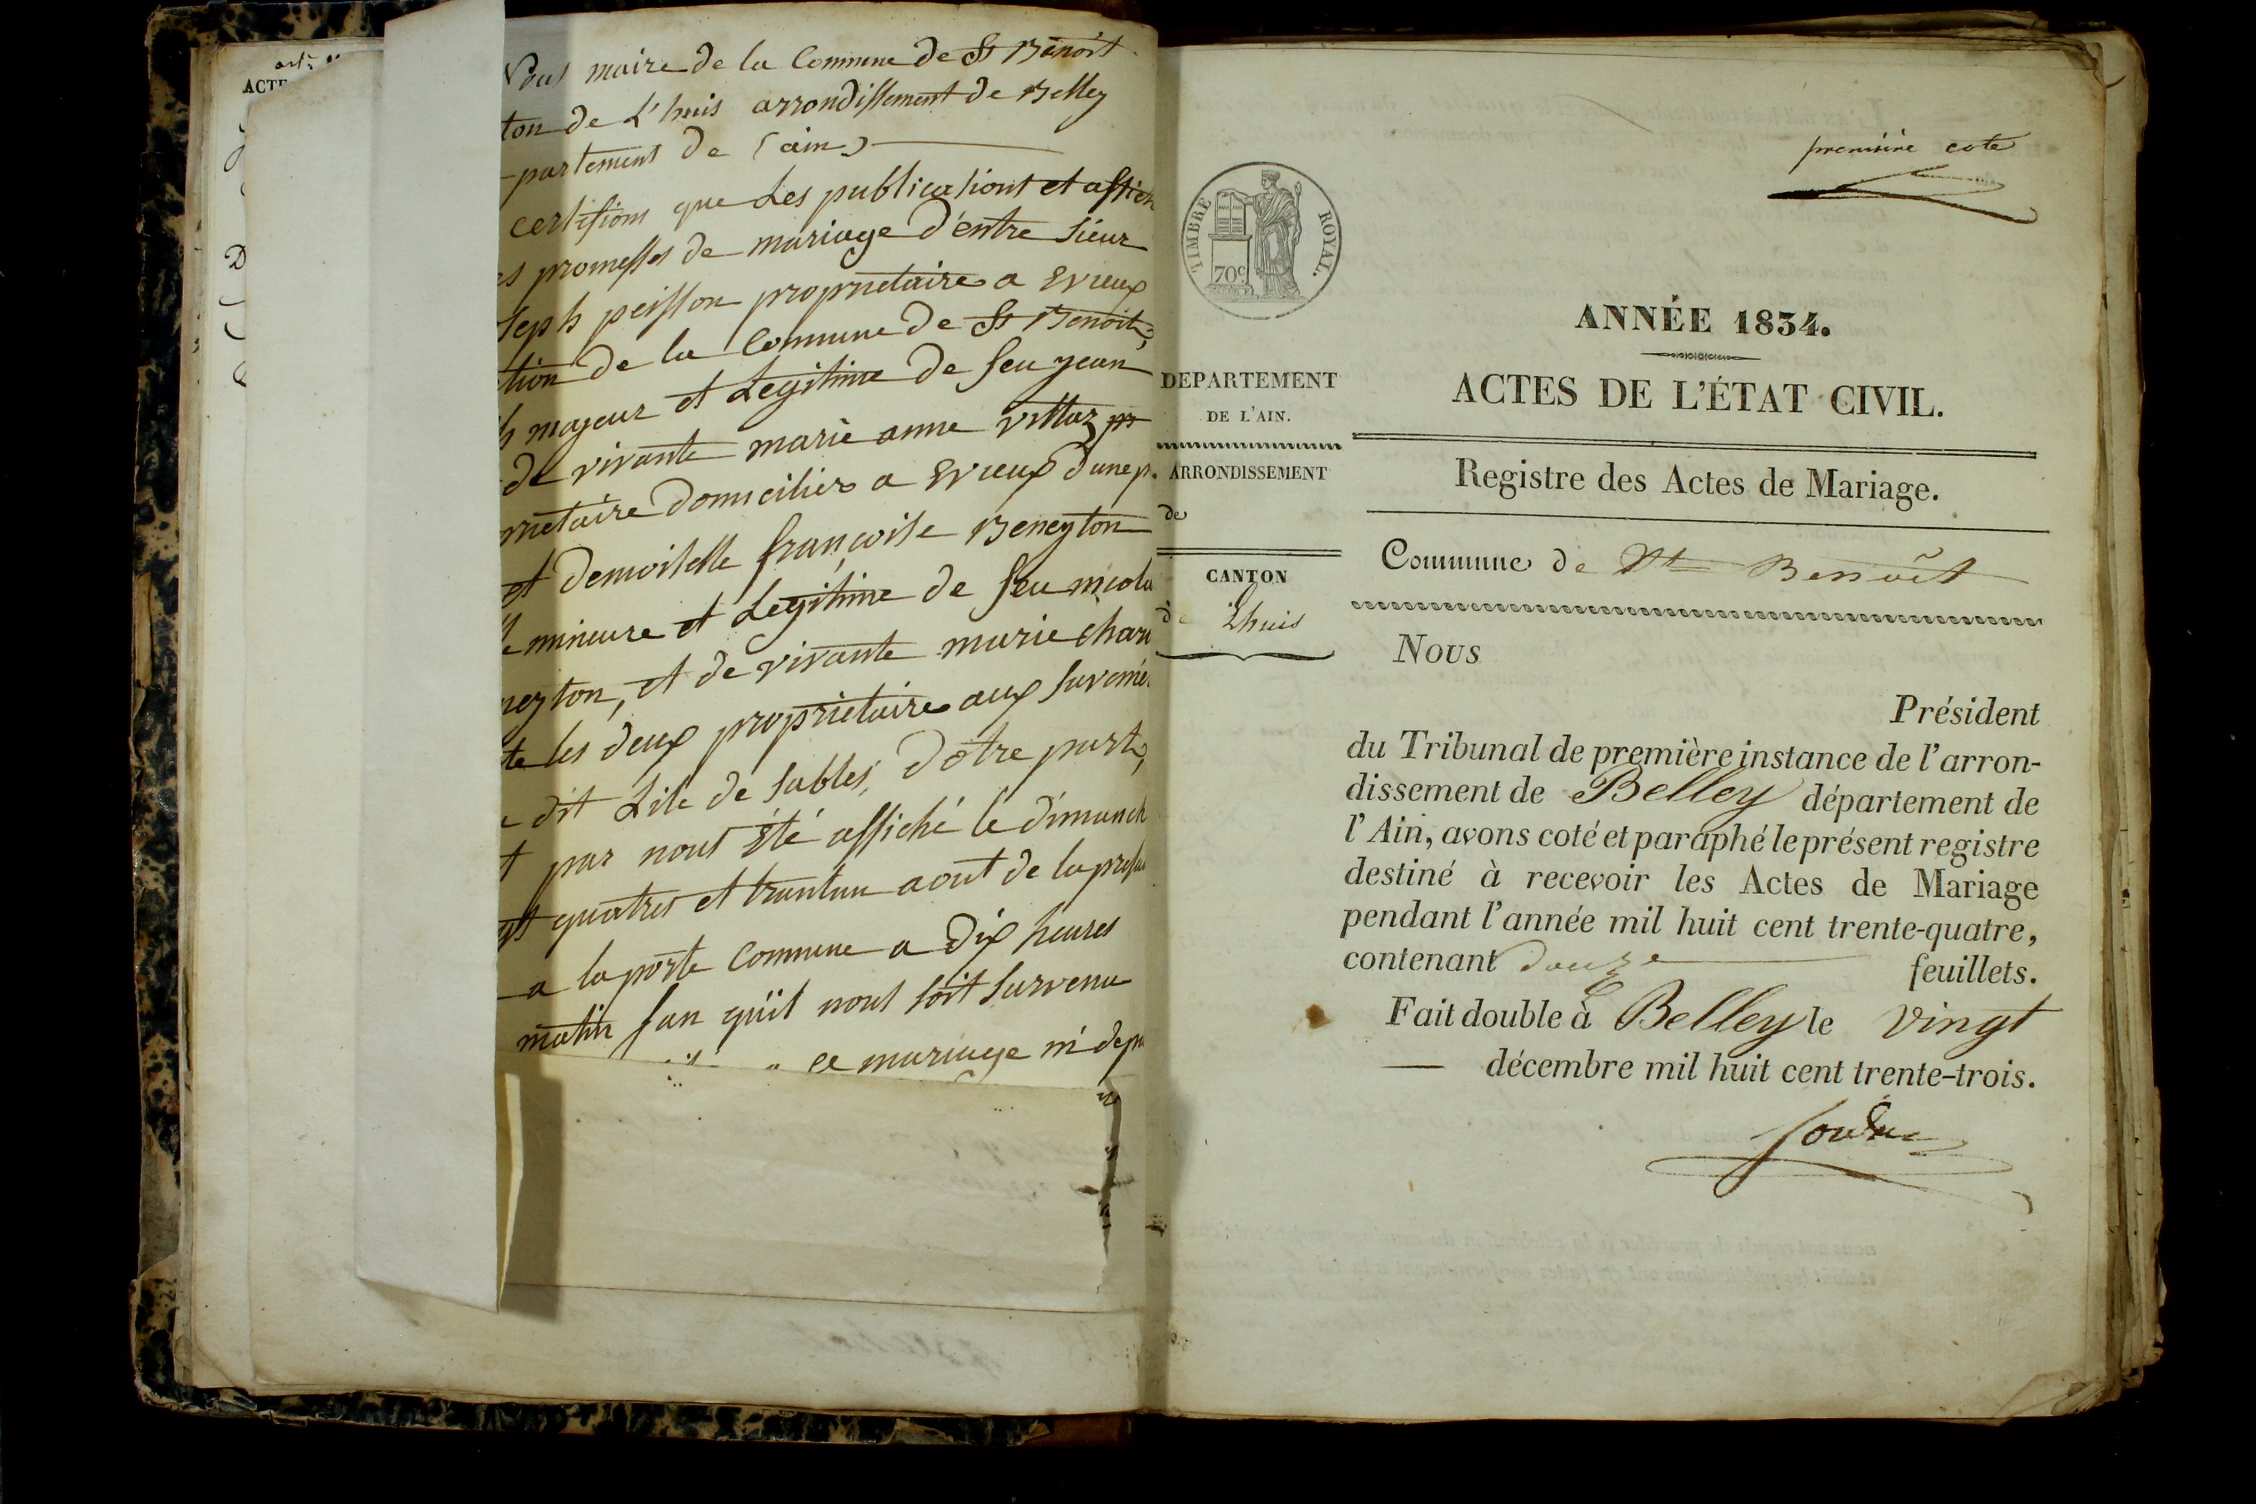 ACTE
Nous maire de la Commune de St Benoit
ton de L'huis arrondissement de Belley
partement de (ain)
certifions que Les publications et affich
es promesses de mariage d'entre sieur
seph peisson proprietaire a Evieux
ction de la Commune de St Benoit,
majeur et Legitime de feu jean
de vivante marie anne vittoz pr
prietaire domicilier a Evieux d'une p.
et demoiselle françoise Beneyton
mineure et Legitime de feu nicola
neyton, et de vivante marie
te les deux proprietaire aux
dit Lile de sables, d'otre part,
t par nous été affiché le dimanch
gt quatres et trantun aout de la
a la porte Commune a dix heures
matin san quil nous soit survenu
ce mariage ni depu
TIMBRE ROYAL.
70c
DEPARTEMENT
DE L'AIN.
ARRONDISSEMENT
de
CANTON
de Lhuis
première cote
ANNÉE 1834.
ACTES DE L'ÉTAT CIVIL.
Registre des Actes de Mariage.
Commune de St Benoît
Nous
Président
du Tribunal de première instance de l'arron-
dissement de Belley département de
l'Ain, avons coté et paraphé le présent registre
destiné à recevoir les Actes de Mariage
pendant l'année mil huit cent trente-quatre,
contenant douze feuillets.
Fait double à Belley le vingt
décembre mil huit cent trente-trois.